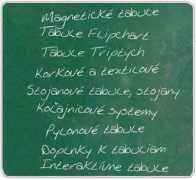 Magnetické tabule
Tabule Flipchart
Tabule Triptych
Korkové a textilové
Stojanové tabule, stojany
Koľajnicové systemy
Pylonové tabule
Doplnky k tabuliam
Interaktívne tabule